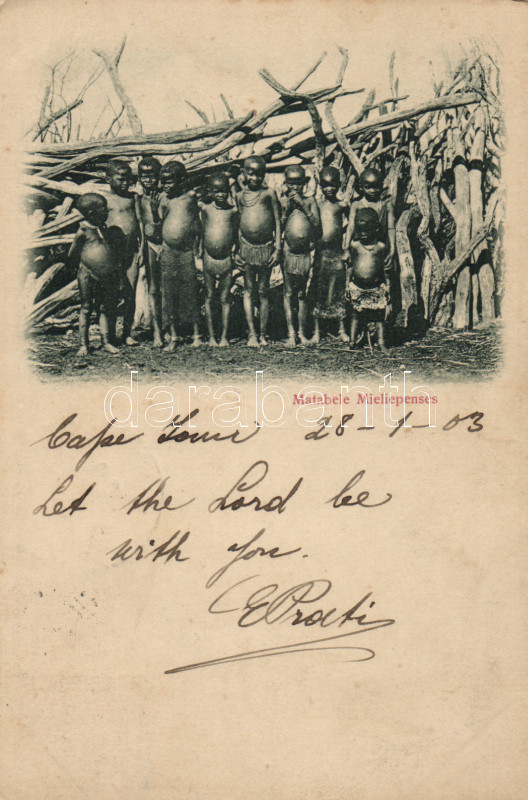 Matabele Mieliepenses
darabanth
Cape Town 28-1-03
Let the Lord be
with you.
EPrati